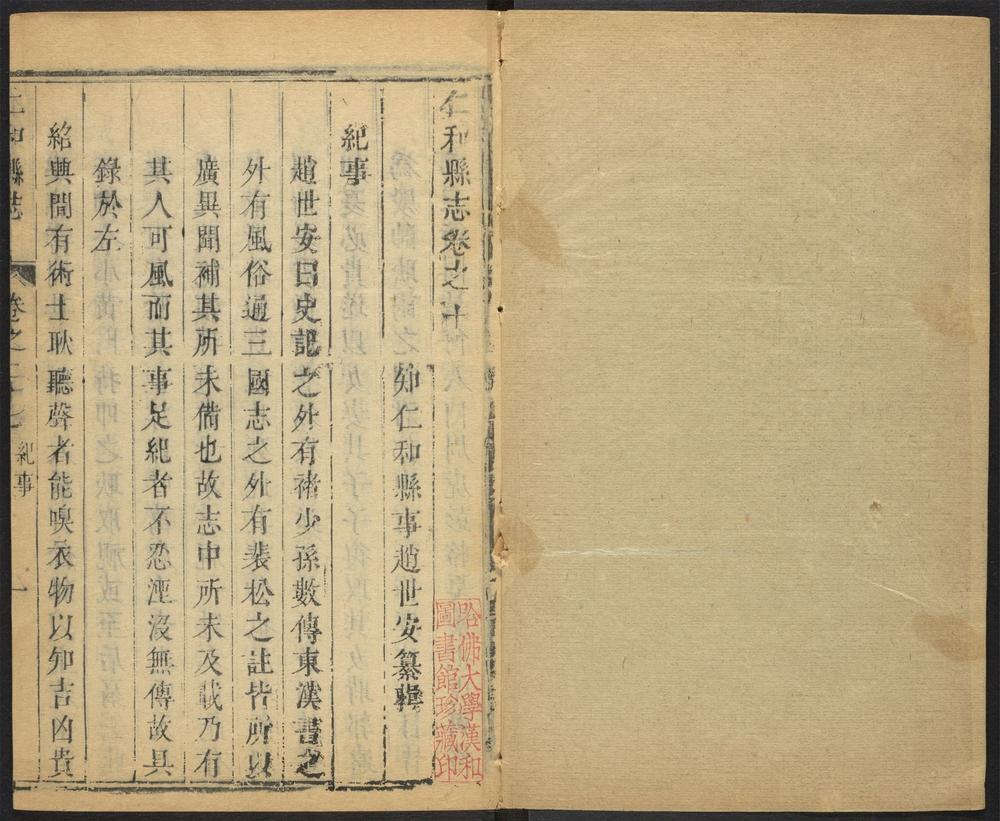 仁和縣志卷之十
知仁和縣事趙世安纂輯
紀事
趙世安曰史記之外有褚少孫數傳東漢書之
外有風俗通三國志之外有裴松之註皆所以
廣異聞補其所未備也故志中所未及載乃有
其人可風而其事足紀者不忍湮沒無傳故具
錄於左
紹興間有術士耿聽聲者能嗅衣物以知吉凶貴
仁和縣志
卷之二七
紀事
一
哈佛大學漢和
圖書館珍藏印